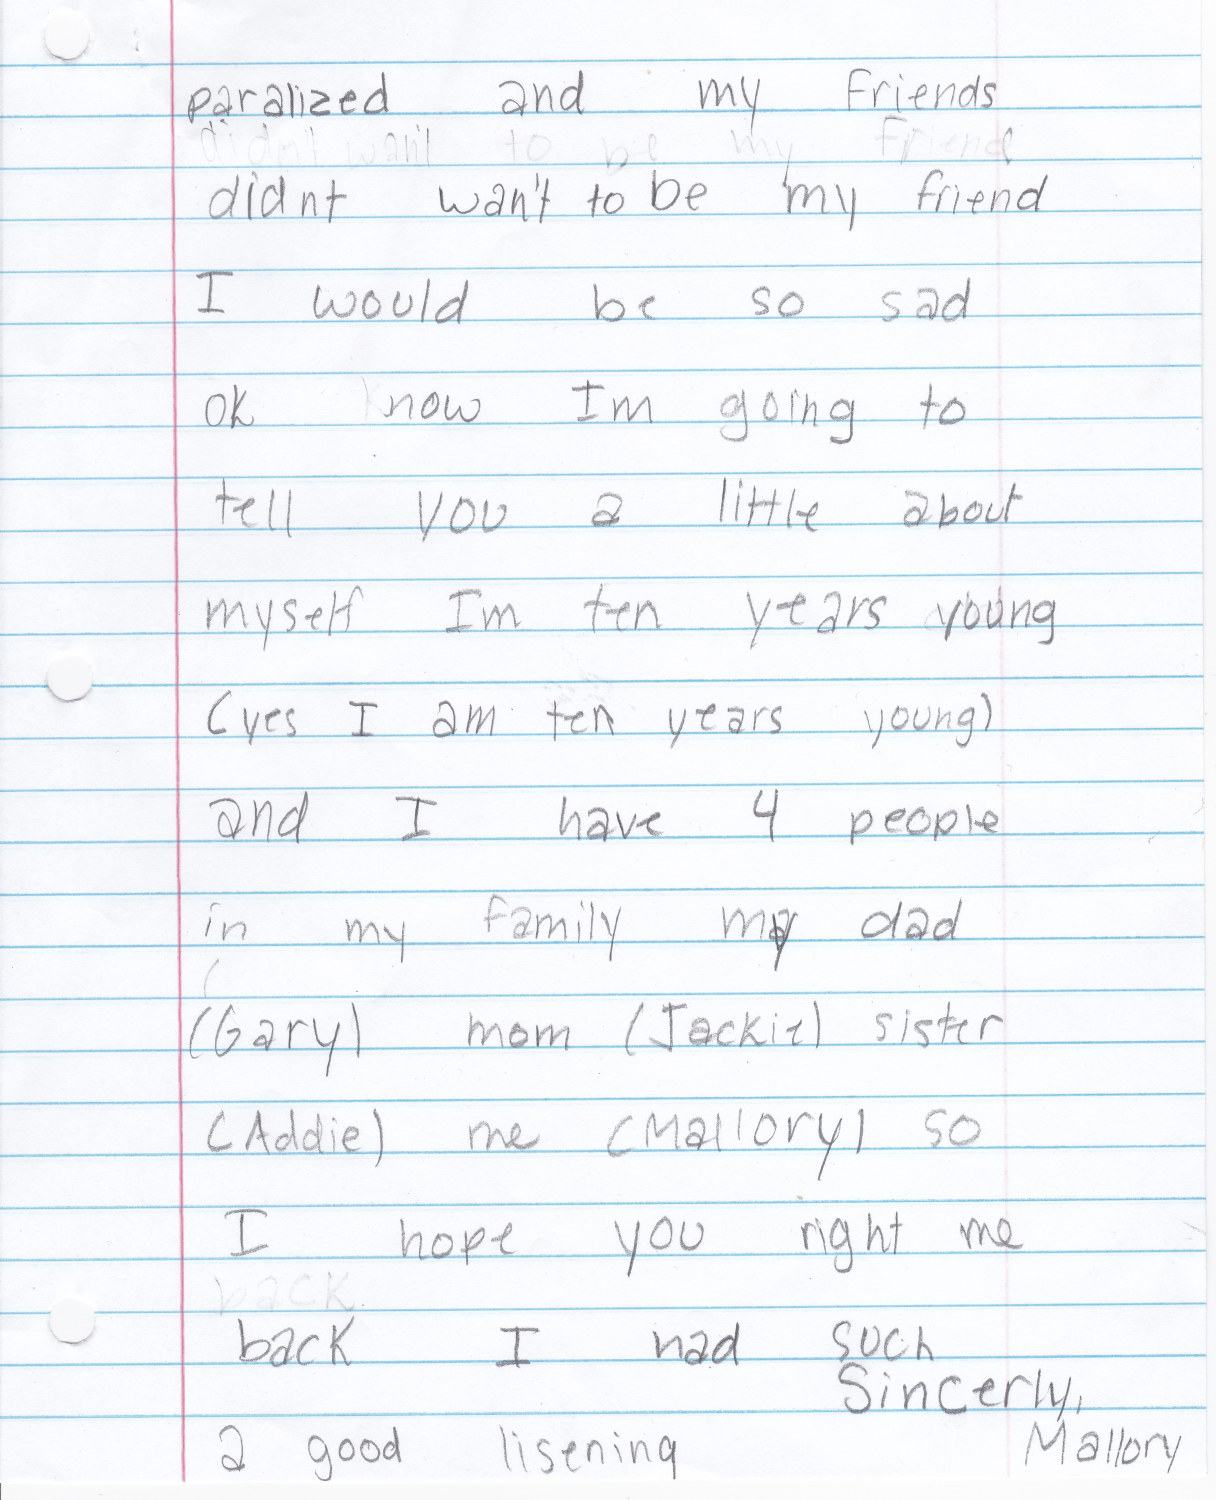 paralized and my friends
didnt wan't to be my friend
didnt wan't to be my friend
I would be so sad
ok now Im going to
tell you a little about
myself Im ten years young
(yes I am ten years young)
and I have 4 people
in my family my dad
(Gary) mom (Jackie) sister
(Addie) me (Mallory) so
I hope you right me
back
back I had such
Sincerly,
a good lisening
Mallory